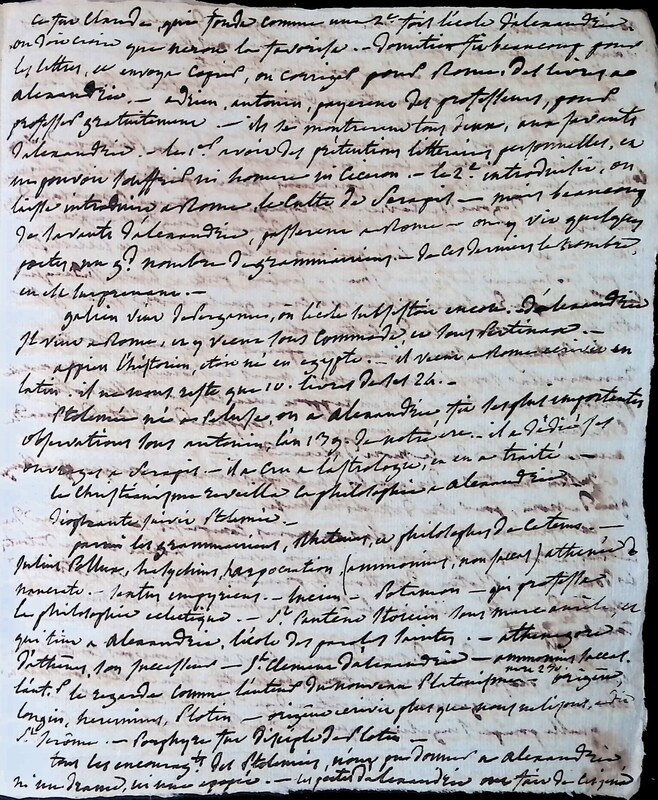 ce fut Claude, qui fonda comme une 2e fois l'école d'alexandrie.
on doit croire que neron la favorisa. - domitien fit beaucoup pour
les lettres, et envoya copier, ou corriger pour Rome, des livres a
alexandrie. - adrien, antonin, payerent des professeurs, pour
professer gratuitement - ils se montrerent tous deux, aux savants
d'alexandrie. - le 1er avoit des pretentions litteraires personnelles, et
ne pouvoit souffrir ni homere ni Ciceron. - le 2e introduisit, ou
laissa introduire a Rome le Culte de Serapis - mais beaucoup
de savants d'alexandrie, passerent a Rome - on y vit quelques
poetes, un gd nombre de grammairiens - de ces derniers le nombre,
en est surprenant. -
galien vint de Pergame, où l'école subsistoit encore. d'alexandrie
il vint a Rome, et y vécut sous Commode, et sous Pertinax. -
appien l'historien, étoit né en egypte. - il vécut a Rome écrivit en
latin. il ne nous reste que 10. livres de ses 24. -
Ptolemée né a Peluse, ou a Alexandrie fit ses plus importantes
observations sous antonin, l'an 139 de notre ère. - il a dédié ses
ouvrages a Serapis. - il a cru a l'astrologie, et en a traité. -
le Christianisme reveilla la philosophie a Alexandrie
diophante suivit Ptolemée. -
parmi les grammairiens, Rheteurs, et philosophes de ce tems. -
Julius Pollux, hesychius, harpocration (ammonius, non saccas) athenée de
naucrate. - sextus empyricus. - lucien - Potamon - qui professa
la philosophie eclectique. - St Pantène Stoicien sous marc aurèle, et
qui tint a Alexandrie, l'école des paroles saintes. - athenagore
d'athènes, son successeur - St Clement d'alexandrie - ammonius saccas.
le regarda comme l'auteur du nouveau Platonisme - origène
longin, herennius, Plotin - origène écrivit plus que nous ne lisons,
St Jerôme. - Porphyre fut disciple de Plotin -
tous les encouragts des Ptolemées, n'ont pu donner a alexandrie
ni un drame, ni une epopée. - les poetes d'alexandrie ont fait de